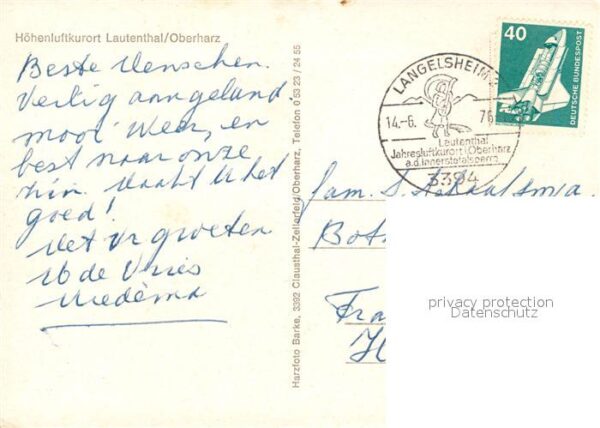 Höhenluftkurort Lautenthal/Oberharz
Beste Menschen.
Veilig aangeland.
mooi Weer, en
best naar onze
zin. Maakt U het
goed!
Met vr groeten
de Vries
Miedema
Harzfoto Barke, 3392 Clausthal-Zellerfeld/Oberharz, Telefon 0 53 23 / 24 55
LANGELSHEIM
14.-6. 76
Lautenthal
Jahresluftkurort i Oberharz
a.d. Innerstetalsperre
3394
40
DEUTSCHE BUNDESPOST
fam. S.
Bot
Fra
H
privacy protection
Datenschutz